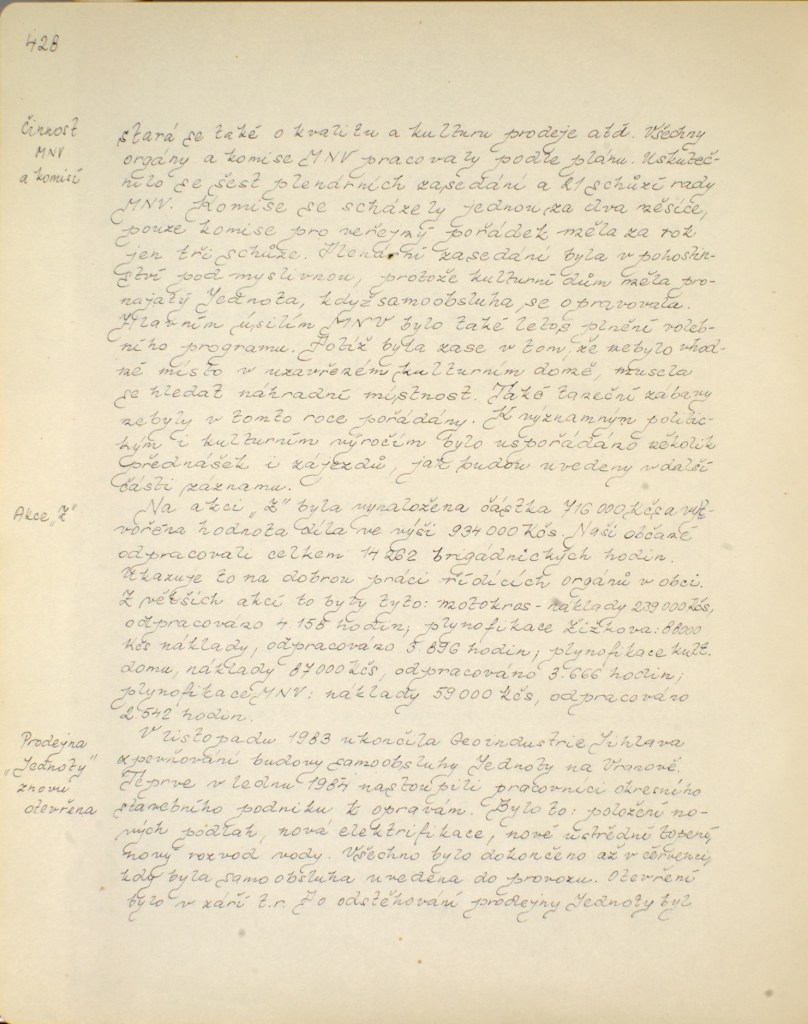 428
Činnost
MNV
a komisí
stará se také o kvalitu a kulturu prodeje atd. Všechny
orgány a komise MNV pracovaly podle plánu. Uskuteč-
nilo se šest plenárních zasedání a 21 schůzí rady
MNV. Komise se scházely jednou za dva měsíce,
pouze komise pro veřejný pořádek měla za rok
jen tři schůze. Plenární zasedání byla v pohostin-
ství pod myslivnou, protože kulturní dům měla pro-
najatý Jednota, když samoobsluha se opravovala.
Hlavním úsilím MNV bylo také letos plnění voleb-
ního programu. Potíž byla zase v tom, že nebylo vhod-
né místo v uzavřeném kulturním domě, musela
se hledat náhradní místnost. Také taneční zábavy
nebyly v tomto roce pořádány. K významným politic-
kým i kulturním výročím bylo uspořádáno několik
přednášek i zájezdů, jak budou uvedeny v další
části záznamu.
Akce „Z"
Na akci „Z" byla vynaložena částka 716 000 Kčs a vyt-
vořena hodnota díla ve výši 934 000 Kčs. Naši občané
odpracovali celkem 14 262 brigádnických hodin.
Ukazuje to na dobrou práci řídících orgánů v obci.
Z větších akcí to byly tyto: motokros - náklady 239 000 Kčs,
odpracováno 4.155 hodin; plynofikace Žižkova: 88000
Kčs náklady, odpracováno 3 896 hodin; plynofikace kult.
domu, náklady 87 000 Kčs, odpracováno 3.666 hodin;
plynofikace MNV: náklady 59 000 Kčs, odpracováno
2.542 hodin.
Prodejna
„Jednoty"
znovu
otevřena
V listopadu 1983 ukončila Geoindustrie Jihlava
zpevňování budovy samoobsluhy Jednoty na Vranově.
Teprve v lednu 1984 nastoupili pracovníci okresního
stavebního podniku k opravám. Bylo to: položení no-
vých podlah, nová elektrifikace, nové ústřední topení,
nový rozvod vody. Všechno bylo dokončeno až v červenci,
kdy byla samoobsluha uvedena do provozu. Otevření
bylo v září t.r. Po odstěhování prodejny Jednoty byl